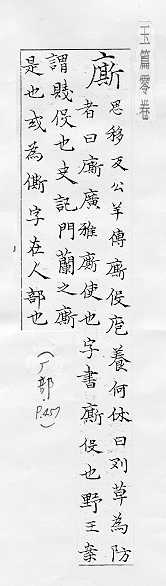 玉篇零卷
廝思移反公羊傳廝伇庖養何休曰刈草為防
者曰廝廣雅廝使也字書廝伇也野王案
謂賤伇也史記門蘭之廝
是也或為㒋字在人部也
(广部.P.457)